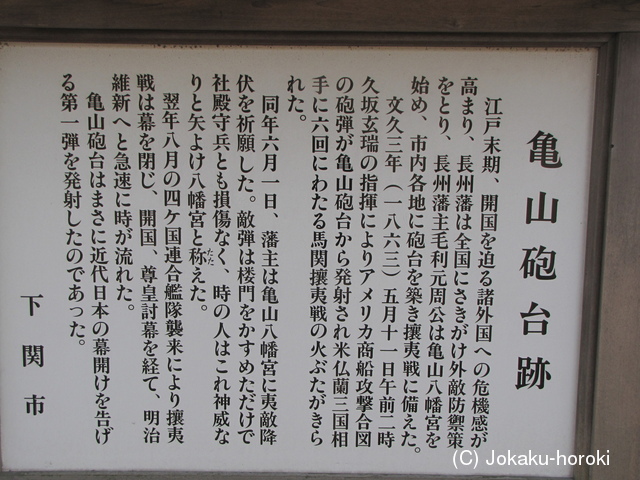 亀山砲台跡
江戸末期、開国を迫る諸外国への危機感が
高まり、長州藩は全国にさきがけ外敵防禦策
をとり、長州藩主毛利元周公は亀山八幡宮を
始め、市内各地に砲台を築き攘夷戦に備えた。
文久三年（一八六三）五月十一日午前二時
久坂玄瑞の指揮によりアメリカ商船攻撃合図
の砲弾が亀山砲台から発射され米仏蘭三国相
手に六回にわたる馬関攘夷戦の火ぶたがきら
れた。
同年六月一日、藩主は亀山八幡宮に夷敵降
伏を祈願した。敵弾は楼門をかすめただけで
社殿守兵とも損傷なく、時の人はこれ神威な
りと矢よけ八幡宮と称えた。
たた
翌年八月の四ケ国連合艦隊襲来により攘夷
戦は幕を閉じ、開国、尊皇討幕を経て、明治
維新へと急速に時が流れた。
亀山砲台はまさに近代日本の幕開けを告げ
る第一弾を発射したのであった。
下関市
(C) Jokaku-horoki